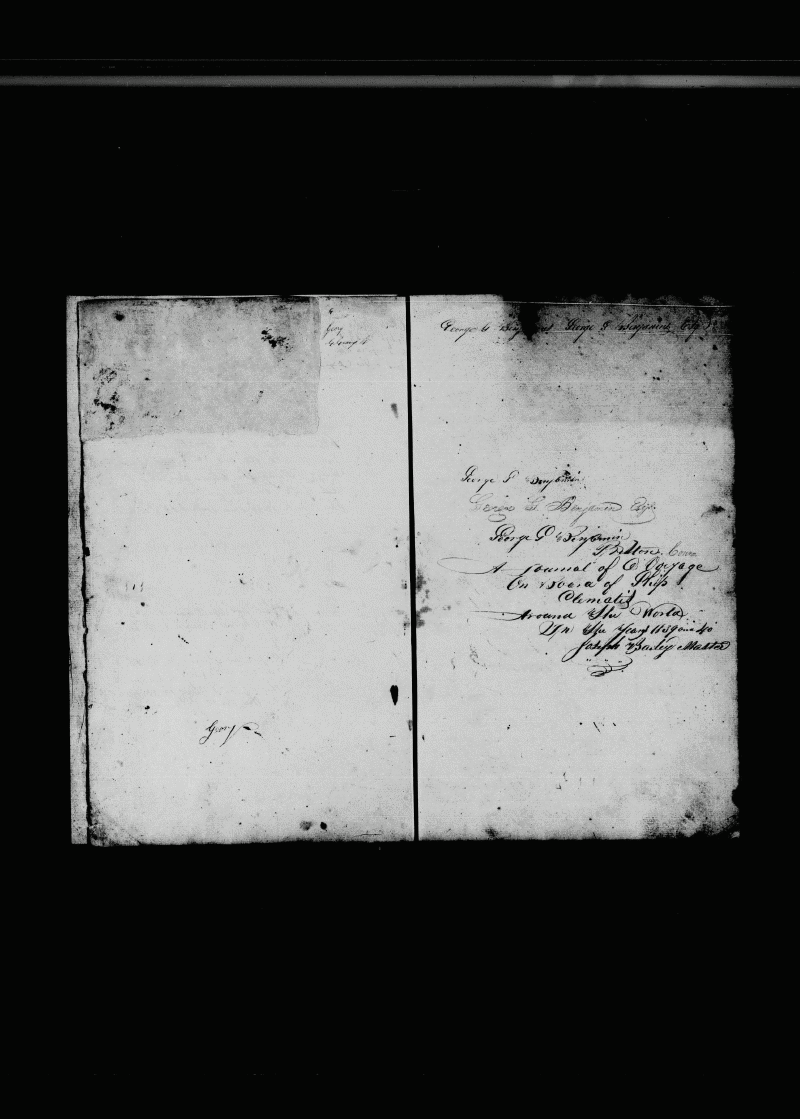 Geo
George G
George
George G Benjamin George G Benjamin Esq
George G Benjamin
George G. Benjamin Esq.
George G Benjamin
Conn
A Journal of A Voyage
On Board of Ship
Clematis
Around The World
In The Years 1839 and 40
Joseph Bailey Master